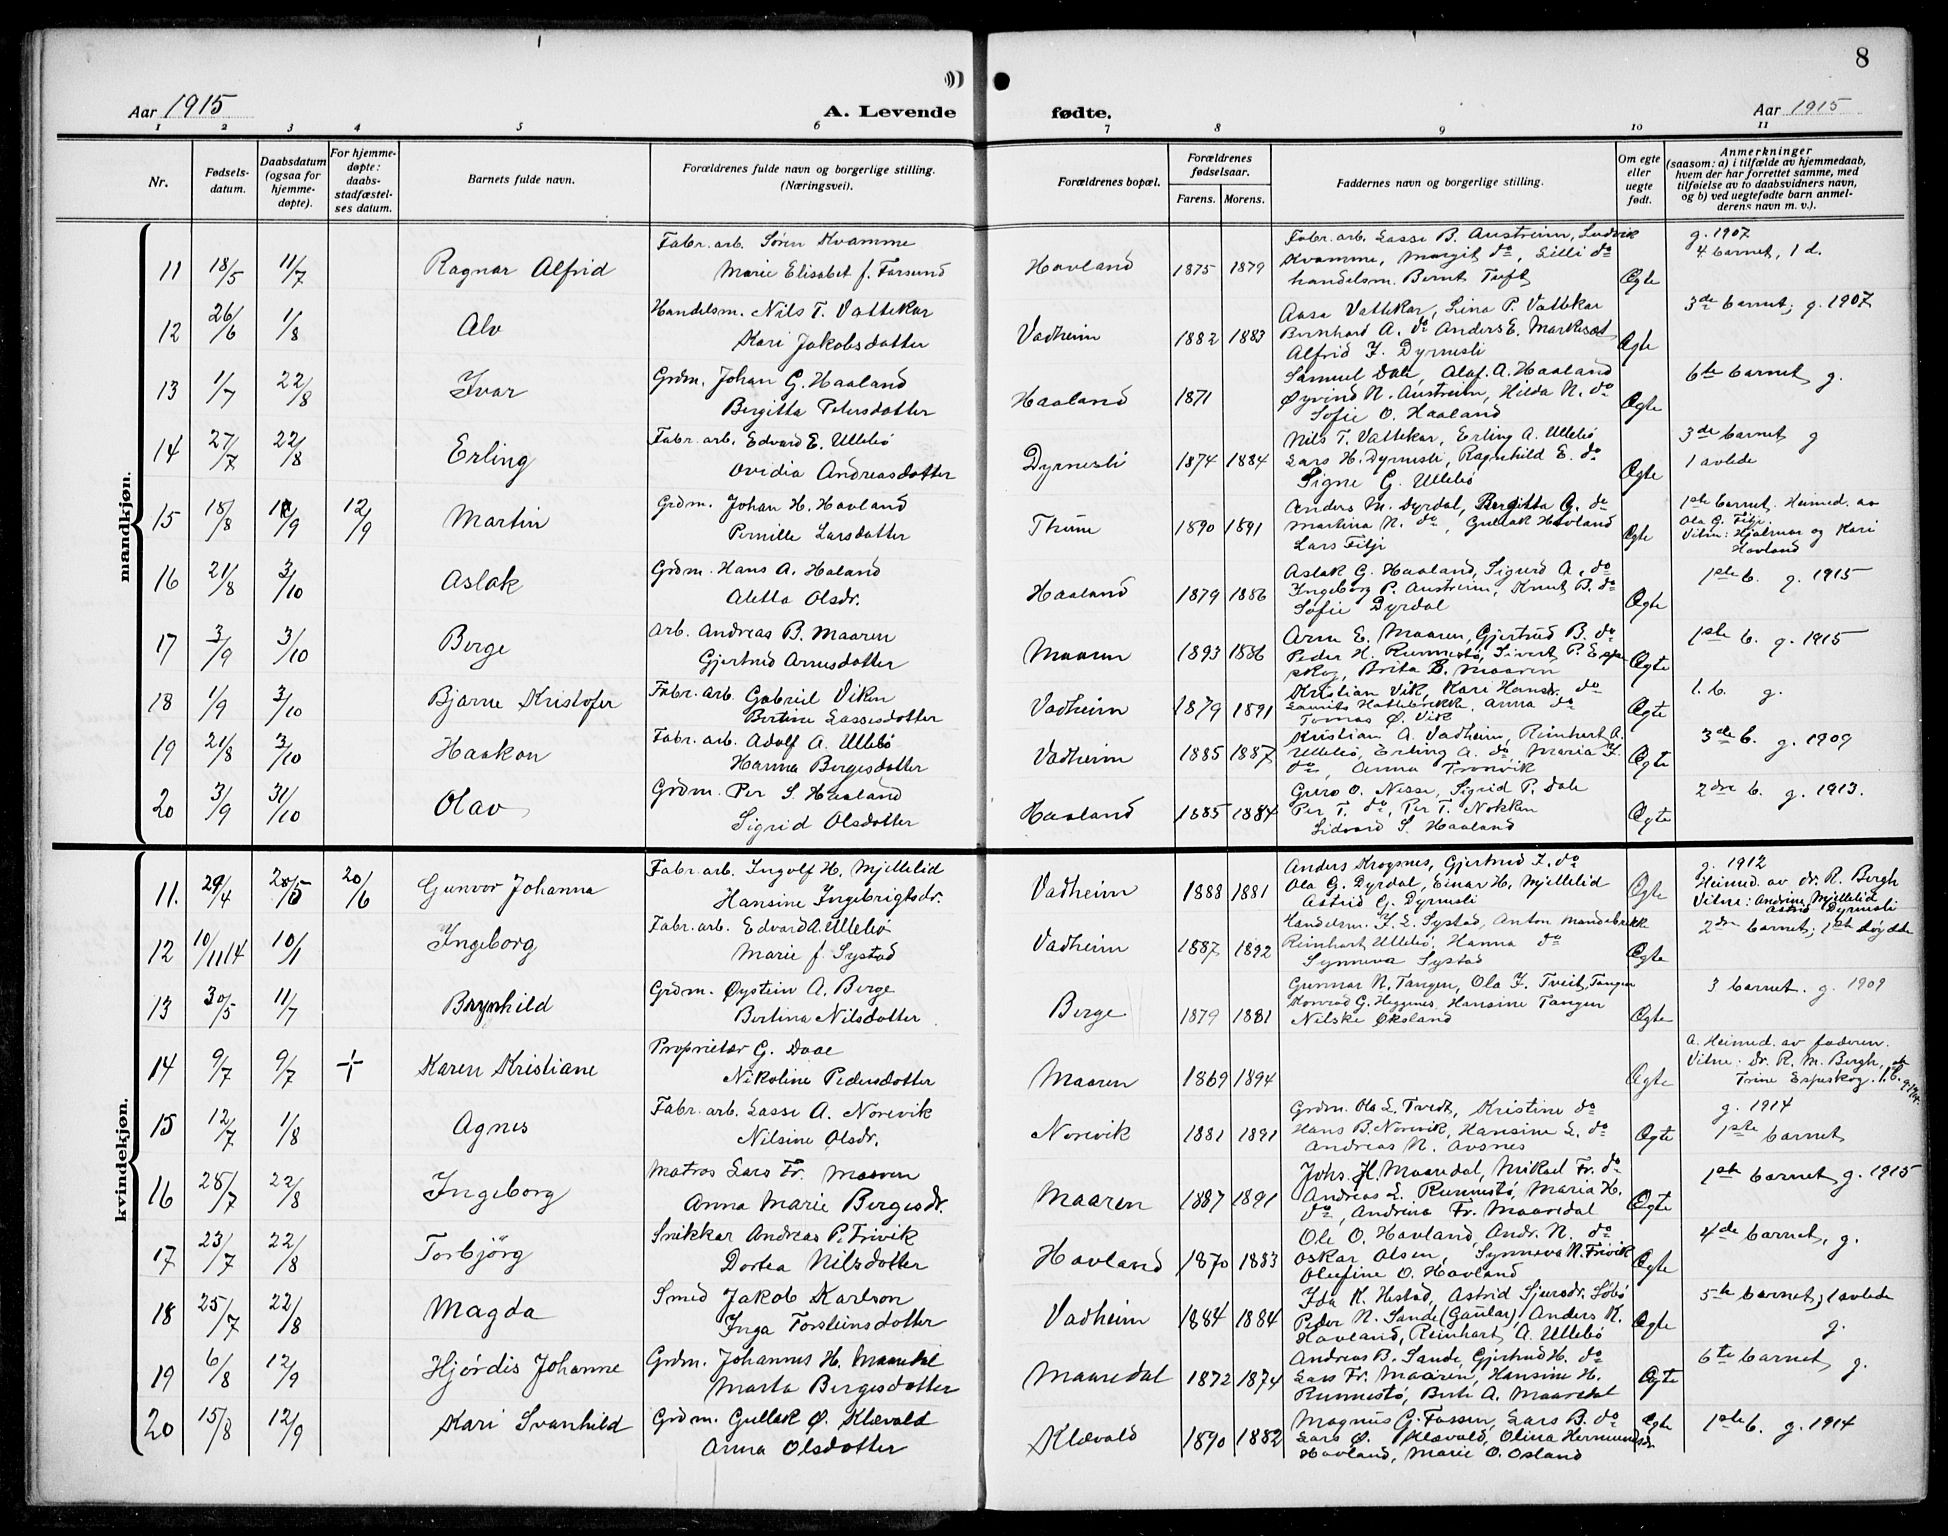 8
Aar 1915
A. Levende
fødte.
Aar 1915
1 2 3 4 5 6 7 8 9 10 11
Nr.
Fødsels-
datum.
Daabsdatum
(ogsaa for
hjemme-
døpte).
For hjemme-
døpte:
daabs-
stadfæstel-
ses datum.
Barnets fulde navn.
Forældrenes fulde navn og borgerlige stilling.
(Næringsvei).
Forældrenes bopæl.
Forældrenes
fødselsaar.
Farens. Morens.
Faddernes navn og borgerlige stilling.
Om egte
eller
uegte
født.
Anmerkninger
(saasom: a) i tilfælde av hjemmedaab,
hvem der har forrettet samme, med
tilføielse av to daabsvidners navn,
og b) ved uegtefødte barn anmel-
derens navn m. v.).
mandkjøn.
11 18/5 11/7 Ragnar Alfrid
Fabr. arb. Søren Kvamme
Marie Elisabet f. Farsund
Havland 1875 1879
Fabr. arb. Lasse B. Austreim, Ludvik
Kvamme, Margit do, Lilli do
handelsm. Bernt Tuft
Ægte
g. 1907
4 barnet, 1 d.
12 26/6 1/8 Alv
Handelsm. Nils T. Vattekar
Kari Jakobsdatter
Vadheim 1882 1883
Aasa Vattekar, Lina P. Vattekar
Bernhard A. do Anders E. Marksæt
Alfrid J. Dyrnesli
Ægte
3de barnet, g. 1907
13 1/7 22/8 Ivar
Grdm. Johan G. Haaland
Bergitta Petersdotter
Haaland 1871
Samuel Dale, Olaf A. Haaland
Øyvind N. Austreim, Hilda N. do
Sofie O. Haaland
Ægte
6te barnet g.
14 27/7 22/8 Erling
Fabr. arb. Edvard E. Ullebø
Ovidia Andreasdotter
Dyrnesli 1874 1884
Nils T. Vattekar, Erling A. Ullebø
Lars H. Dyrnesli, Ragnhild E. do
Signe G. Ullebø
Ægte
3de barnet g
1 avlede
15 18/8 12/9 12/9 Martin
Grdm. Johan H. Havland
Pernille Larsdatter
Thune 1890 1891
Anders M. Dyrdal, Bergitta G. do
Martina N. do, Gullak Havland
Lars Filje
Ægte
1ste barnet. Heimed. av
Ola G. Filje.
Vitne: Hjalmar og Kari
Havland
16 21/8 3/10 Aslak
Grdm. Hans A. Haland
Aletta Olsdr.
Haaland 1879 1886
Aslak G. Haaland, Sigurd A. do
Ingeborg P. Austreim, Knut B. do
Sofie Dyrdal
Ægte
1ste b. g. 1915
17 3/9 3/10 Berge
Arb. Andreas B. Maaren
Gjertrud Arnesdotter
Maaren 1893 1886
Arne E. Maaren, Gjertrud B. do
Peder H. Runnestø, Sivert P. Espe
skog, Brita B. Maaren
Ægte
1ste b. g. 1915
18 1/9 3/10 Bjarne Kristofer
Fabr. arb. Gabriel Viken
Bertine Lassesdotter
Vadheim 1879 1891
Kristian Vik, Kari Hansdr. do
Laurits Hattebrekk, Anna do
Tomas Ø. Vik
Ægte
1. b. g.
19 21/8 3/10 Haakon
Fabr. arb. Adolf A. Ullebø
Hanna Bergesdotter
Vadheim 1885 1887
Kristian A. Vadheim, Reinhert A.
Ullebø, Erling A. do, Maria J.
do, Anna Tronvik
Ægte
3de b. g. 1909
20 3/9 31/10 Olav
Grdm. Per S. Haaland
Sigrid Olsdotter
Haaland 1885 1884
Guro O. Nesse, Sigrid P. Dale
Per T. do, Per T. Nokken
Sidvard S. Haaland
Ægte
2dre b. g. 1913.
kvindekjøn.
11. 29/4 20/5 20/6 Gunvor Johanna
Fabr. arb. Ingolf H. Mjellelid
Hansine Ingebrigtsdr.
Vadheim 1888 1881
Anders Krogsnes, Gjertrud I. do
Ola G. Dyrdal, Einar H. Mjellelid
Astrid G. Dyrnesli
Ægte
g. 1912
Heimed av dr. R. Bergh
Vitne: Andrine Mjellelid
Astrid Dyrnesli
12 10/11 14 10/1 Ingeborg
Fabr. arb. Edvard A. Ullebø
Marie f. Systad
Vadheim 1887 1892
Handelsm. J. L. Systad, Anton Mandebrekk
Reinhart Ullebø, Hanna do
Synneva Systad
Ægte
2dre barnet; 1ste døydde
13 30/5 11/7 Brynhild
Grdm. Øystein A. Berge
Bertina Nilsdotter
Berge 1879 1881
Gunnar N. Tangen, Ola J. Tveit, Tangen
Konrad G. Heggenes, Hansine Tangen
Nilske Øksland
Ægte
3 barnet. g. 1909
14 9/7 9/7 + Karen Kristiane
Proprietær G. Daae
Nikoline Pedersdotter
Maaren 1869 1894
Ægte
A. Heimed. av faderen.
Vitne: Dr. R. M. Bergh, og
Trine Espeskog. 1. b.
15 12/7 1/8 Agnes
Fabr. arb. Lasse A. Norevik
Nilsine Olsdr.
Norevik 1881 1891
Grdm. Ola L. Tvedt, Kristine do
Hans B. Norevik, Hansine L. do
Andreas N. Avsnes
Ægte
g. 1914
1ste barnet
16 28/7 22/8 Ingeborg
Matros Lars Fr. Maaren
Anna Marie Bergesdr.
Maaren 1887 1891
Johs. H. Maaredal, Mikael Fr. do
Andreas L. Runnestø, Maria H.
do, Andrina Fr. Maaredal
Ægte
1ste barnet g. 1915
17 23/7 22/8 Torbjørg
Snikkar Andreas P. Trivik
Dortea Nilsdotter
Havland 1870 1883
Ole O. Havland, Andr. N. do
Oskar Olsen, Synneva N. Trivik
Olufine O. Havland
Ægte
4de barnet, g.
18 25/7 22/8 Magda
Smed Jakob Karlson
Inga Torsteinsdotter
Vadheim 1884 1884
Ida K. Hestad, Astrid Sjursdr. Sørbø
Peder N. Sande (Gaular), Anders K.
Havland, Reinhart A. Ullebø
Ægte
5te barnet, 1 avlede
g.
19 6/8 12/9 Hjørdis Johanne
Grdm. Johannes H. Maaredal
Marta Bergesdotter
Maaredal 1872 1874
Andreas B. Sande, Gjertrud H. do
Lars Fr. Maaren, Hansine H.
Runnestø, Berti A. Maaredal
Ægte
6te barnet g.
20 15/8 12/9 Kari Svanhild
Grdm. Gullak Ø. Klævold
Anna Olsdotter
Klævold 1890 1882
Magnus G. Fossen, Lars B. do
Lars Ø. Klævold, Olina Hermundsdr
Havland, Marie O. Osland
Ægte
1ste b. g. 1914